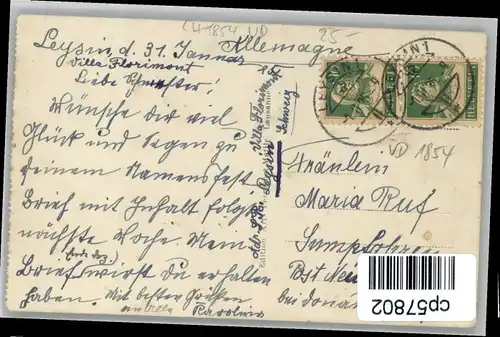 CH 1854 VD
25-
Leysin d. 31. Januar
Allemagne
Villa Florimont
Liebe Schwester!
Wünsche dir viel
Glück und Segen zu
deinem Namensfest
Brief mit Inhalt folgt
nächste Woche. Mein
Brief wirst du erhalten
haben. Mit besten Grüßen
an alle Karolina
Villa Florimont
Leysin Schweiz
LEYSIN 1
HELVETIA
VD 1854
Fräulein
Maria Ruf
Sumpfohren
Post Neu
bei Donau
cp57802